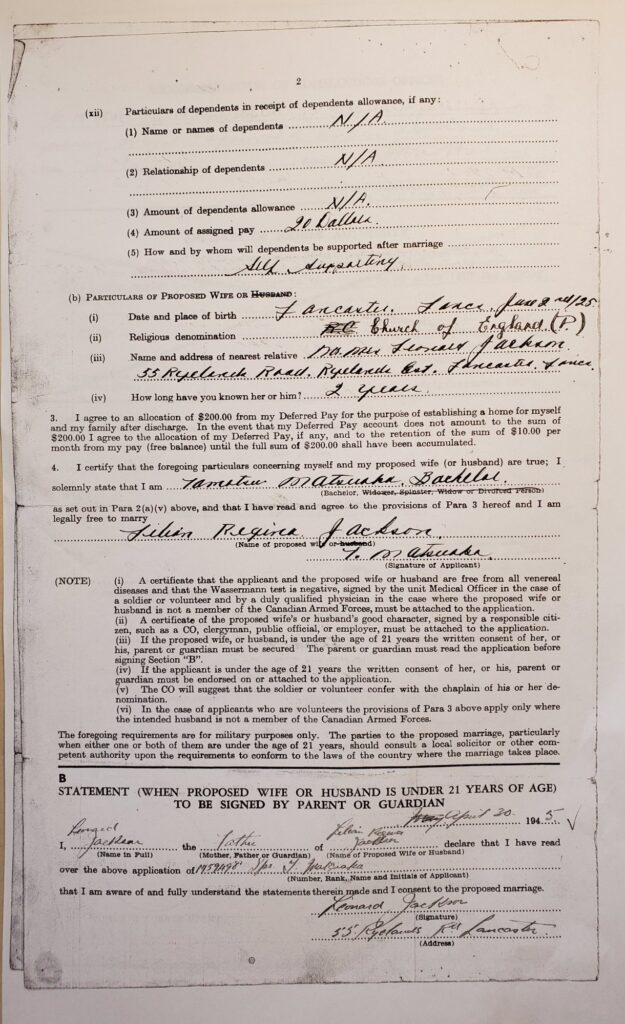 2
(xii) Particulars of dependents in receipt of dependents allowance, if any:
(1) Name or names of dependents N/A
(2) Relationship of dependents N/A
(3) Amount of dependents allowance N/A.
(4) Amount of assigned pay 20 Dollars.
(5) How and by whom will dependents be supported after marriage
Self Supporting.
(b) PARTICULARS OF PROPOSED WIFE OR HUSBAND:
(i) Date and place of birth Lancaster, Lancs, June 2nd/25
(ii) Religious denomination RC Church of England (P.)
(iii) Name and address of nearest relative Mrs Leonard Jackson.
55 Ryelands Road, Ryelands Est. Lancaster. Lancs.
(iv) How long have you known her or him? 2 years.
3. I agree to an allocation of $200.00 from my Deferred Pay for the purpose of establishing a home for myself
and my family after discharge. In the event that my Deferred Pay account does not amount to the sum of
$200.00 I agree to the allocation of my Deferred Pay, if any, and to the retention of the sum of $10.00 per
month from my pay (free balance) until the full sum of $200.00 shall have been accumulated.
4. I certify that the foregoing particulars concerning myself and my proposed wife (or husband) are true; I
solemnly state that I am Tamotsu Matsuoka, Bachelor
(Bachelor, Widower, Spinster, Widow or Divorced Person)
as set out in Para 2(a)(v) above, and that I have read and agree to the provisions of Para 3 hereof and I am
legally free to marry
Lilian Regina Jackson.
(Name of proposed wife or husband)
T. Matsuoka.
(Signature of Applicant)
(NOTE) (i) A certificate that the applicant and the proposed wife or husband are free from all venereal
diseases and that the Wassermann test is negative, signed by the unit Medical Officer in the case of
a soldier or volunteer and by a duly qualified physician in the case where the proposed wife or
husband is not a member of the Canadian Armed Forces, must be attached to the application.
(ii) A certificate of the proposed wife's or husband's good character, signed by a responsible citi-
zen, such as a CO, clergyman, public official, or employer, must be attached to the application.
(iii) If the proposed wife, or husband, is under the age of 21 years the written consent of her, or
his, parent or guardian must be secured The parent or guardian must read the application before
signing Section "B".
(iv) If the applicant is under the age of 21 years the written consent of her, or his, parent or
guardian must be endorsed on or attached to the application.
(v) The CO will suggest that the soldier or volunteer confer with the chaplain of his or her de-
nomination.
(vi) In the case of applicants who are volunteers the provisions of Para 3 above apply only where
the intended husband is not a member of the Canadian Armed Forces.
The foregoing requirements are for military purposes only. The parties to the proposed marriage, particularly
when either one or both of them are under the age of 21 years, should consult a local solicitor or other com-
petent authority upon the requirements to conform to the laws of the country where the marriage takes place.
B
STATEMENT (WHEN PROPOSED WIFE OR HUSBAND IS UNDER 21 YEARS OF AGE)
TO BE SIGNED BY PARENT OR GUARDIAN
April 20 1945
I, Leonard Jackson the Father of Lilian Regina Jackson declare that I have read
(Name in Full) (Mother, Father or Guardian) (Name of Proposed Wife or Husband)
over the above application of T Matsuoka
(Number, Rank, Name and Initials of Applicant)
that I am aware of and fully understand the statements therein made and I consent to the proposed marriage.
Leonard Jackson
(Signature)
55 Ryelands Rd Lancaster.
(Address)